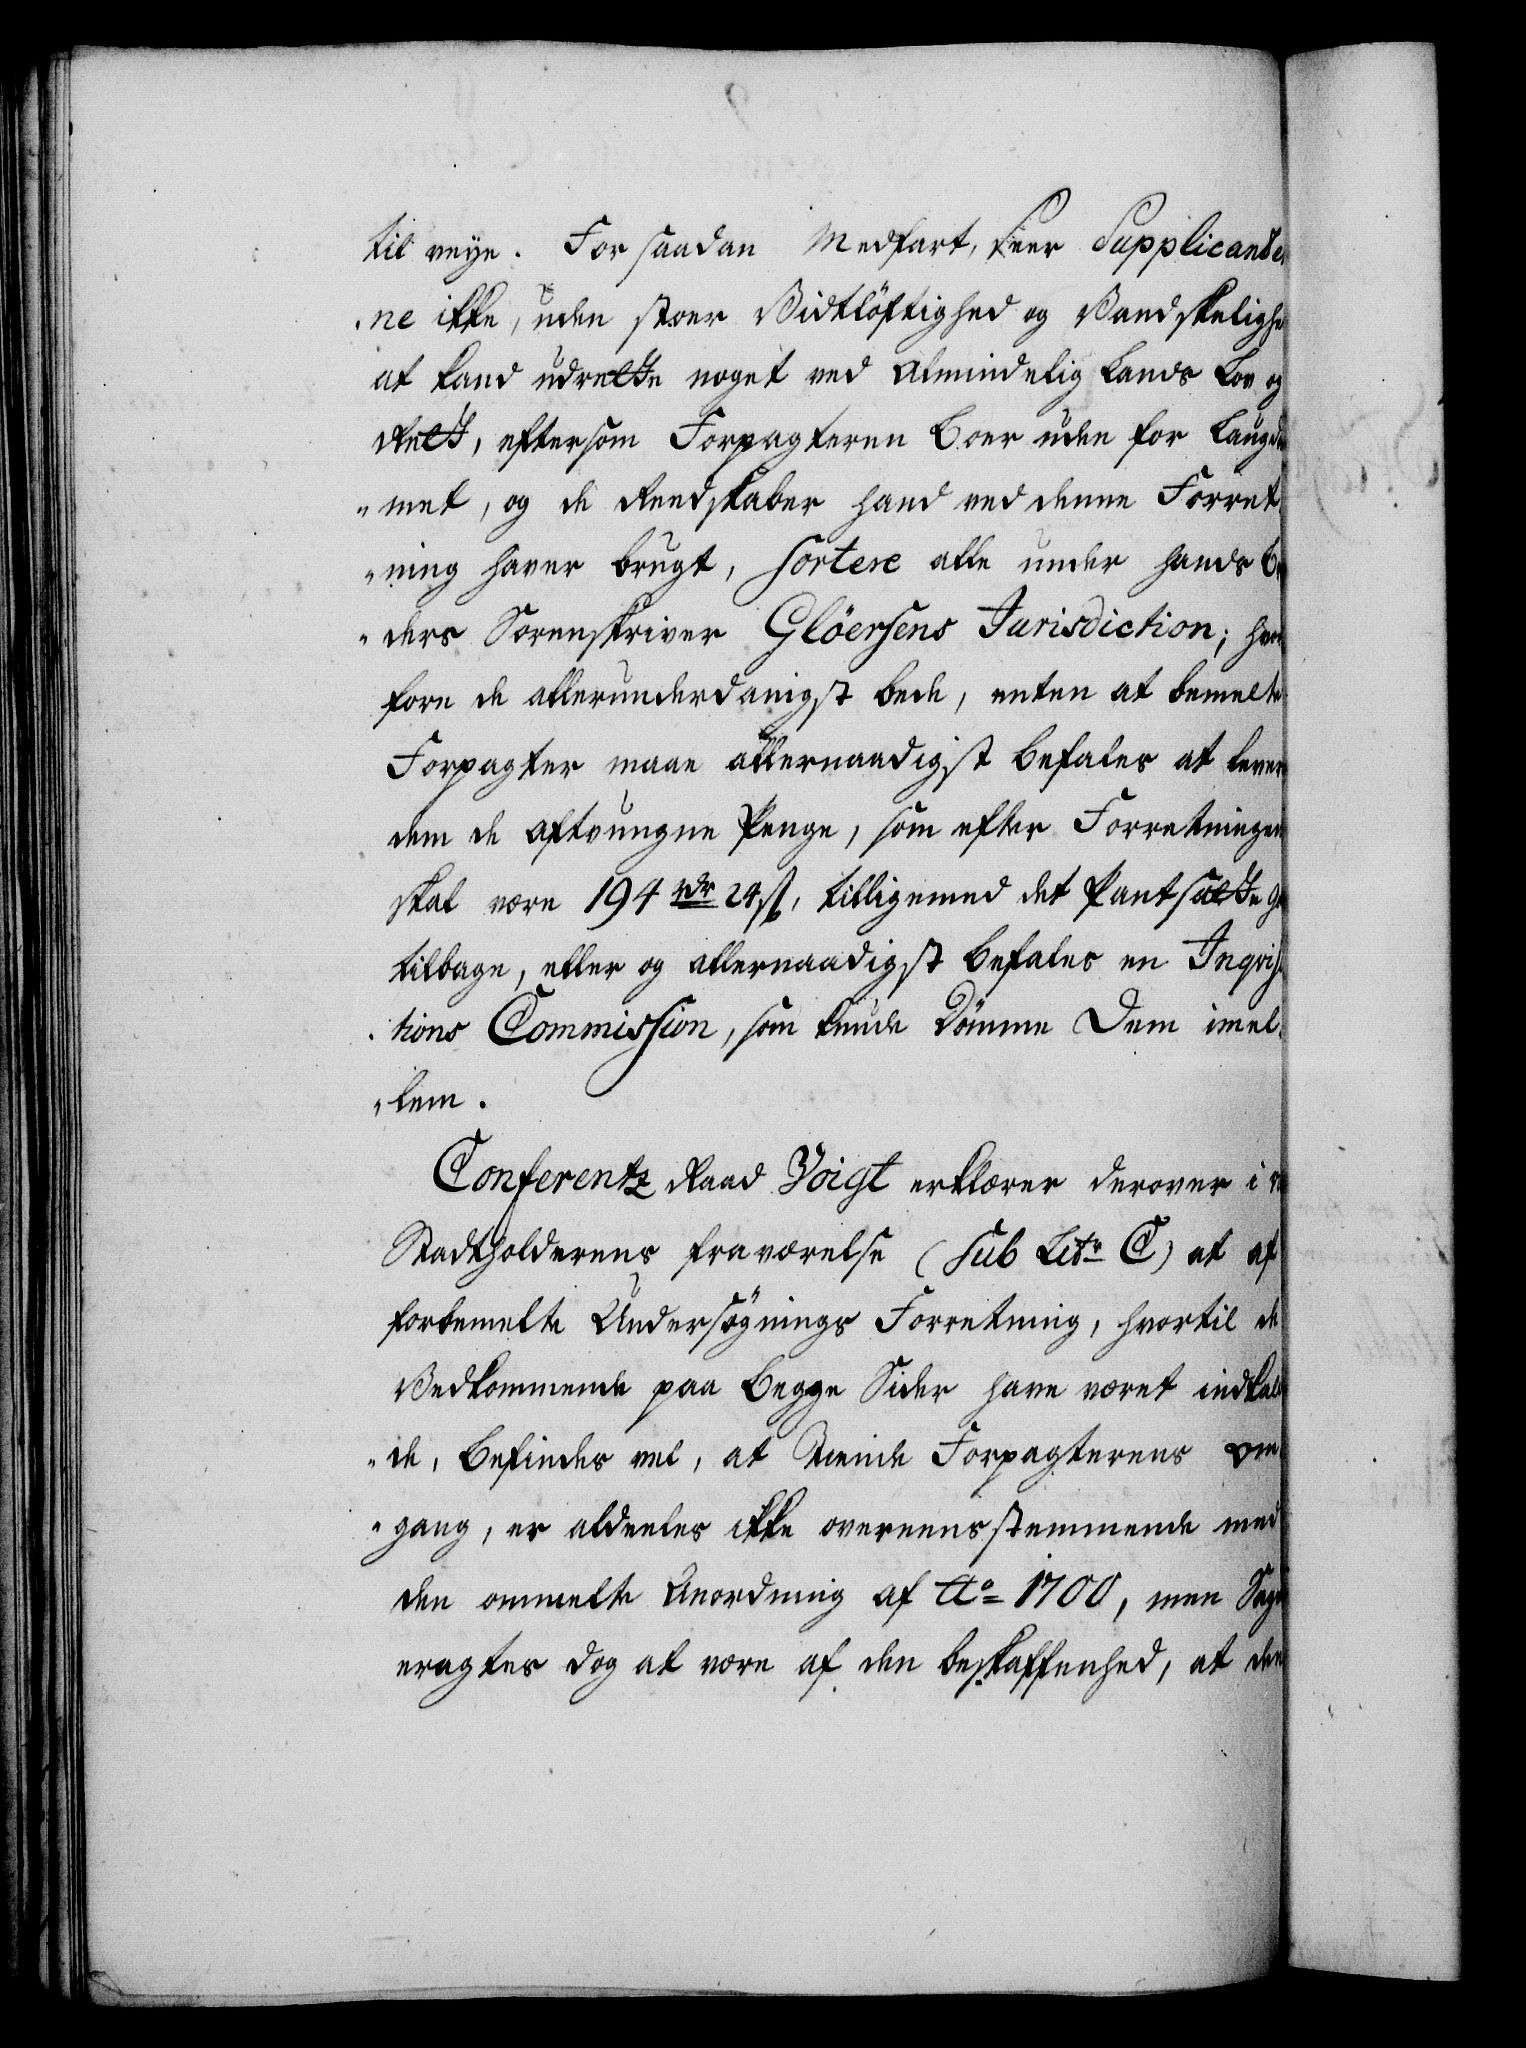 til veye. For saadan Medfart, seer Supplicante,
.ne ikke, uden stoer Vidtlöftighed og Vandskelighe
at kand udrette noget ved Almindelig Lands Lov og
Rett, eftersom Forpagteren Boer uden for Laugdöm
"met, og de Reedskaber hand ved denne Forret,
"ning haver brugt, Sortere alle under hands Bro
"ders Sorenskriver Glöersens Jurisdiction; hvor
fore de allerunderdanigst bede, enten at bemelte
Forpagter maae allernaadigst befales at levere
dem de aftvungne Penge, som efter Forretningen
skal være 194 rdr 24 s, tilligemed det Pantsatte
tilbage, eller og allernaadigst befales en Inqvisi,
.tions Commission, som kunde Dömme Dem imel,
"lem.
Conferentz Raad Voigt erklærer derover i
Stadtholderens fraværelse (sub Litr C) at af
forbemelte Undersøgnings Forretning, hvortil de
Vedkommende paa Begge Sider have været indkal
"de, befindes vel, at Tiende Forpagterens om
"gang, er aldeeles ikke overeensstemmende med
den ommelte Anordning af Ao 1700, men Sagen
eragtes dog at være af den beskaffenhed, at den